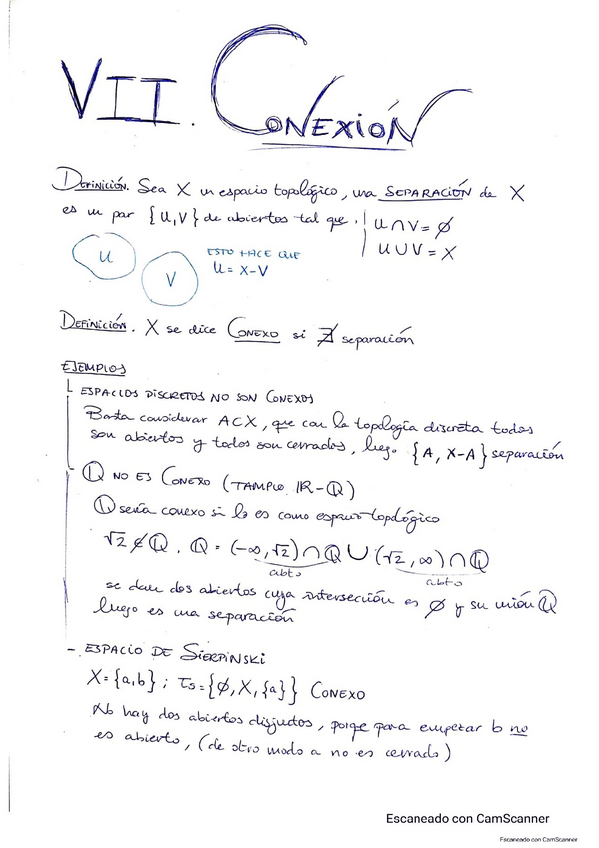 VII. CONEXIÓN
Definición. Sea X un espacio topológico, una SEPARACIÓN de X
es un par {U,V} de abiertos tal que | U∩V=∅
U∪V=X
U
V
ESTO HACE QUE
U=X-V
Definición. X se dice CONEXO si ∄ separación
EJEMPLOS
ESPACIOS DISCRETOS NO SON CONEXOS
Basta considerar A⊂X, que con la topología discreta todos
son abiertos y todos son cerrados, luego {A, X-A} separación
ℚ NO ES CONEXO (TAMPOCO ℝ-ℚ)
ℚ sería conexo si lo es como espacio topológico
√2∉ℚ. ℚ=(-∞,√2)∩ℚ ∪ (√2,∞)∩ℚ
abto abto
se dan dos abiertos cuya intersección es ∅ y su unión ℚ
luego es una separación
- ESPACIO DE SIERPINSKI
X={a,b}; τs={∅,X,{a}} CONEXO
No hay dos abiertos disjuntos, porque para empezar b no
es abierto, (de otro modo a no es cerrado)
Escaneado con CamScanner
Escaneado con CamScanner